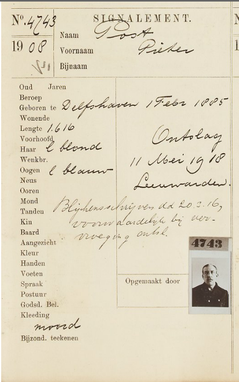 No. 4743 SIGNALEMENT.
1908 Naam Post
Voornaam Pieter
Bijnaam
Oud Jaren
Beroep
Geboren te Delfshaven 1 Febr 1885
Wonende
Lengte 1.616
Voorhoofd Ontslag
Haar l blond
Wenkbr. 11 Mei 1918
Oogen l blauw
Neus Leeuwarden.
Ooren
Mond
Tanden Blijkens schrijven dd 20-2-16,
Kin voorwaardelijk bij ver-
Baard vroeging ontsl.
Aangezicht
4743
Kleur
Handen
Voeten Opgemaakt door
Spraak
Postuur
Godsd. Bel.
Kleeding
moord
Bijzond. teekenen